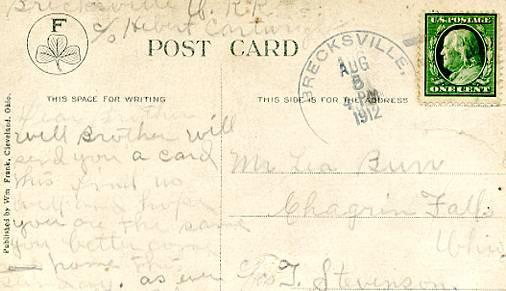 Brecksville O. R.R.
c/o Hebert Cartwright
F
POST CARD
BRECKSVILLE,
AUG
5
PM
1912
U.S. POSTAGE
ONE CENT
THIS SPACE FOR WRITING
THIS SIDE IS FOR THE ADDRESS
Published by Wm Frank, Cleveland, Ohio.
Dear Brother
Well Brother will
send you a card
this
well and hope
you are the same
you better come
home this
Sunday. as ever
Mr
Chagrin Falls
Ohio
T. Stevenson.